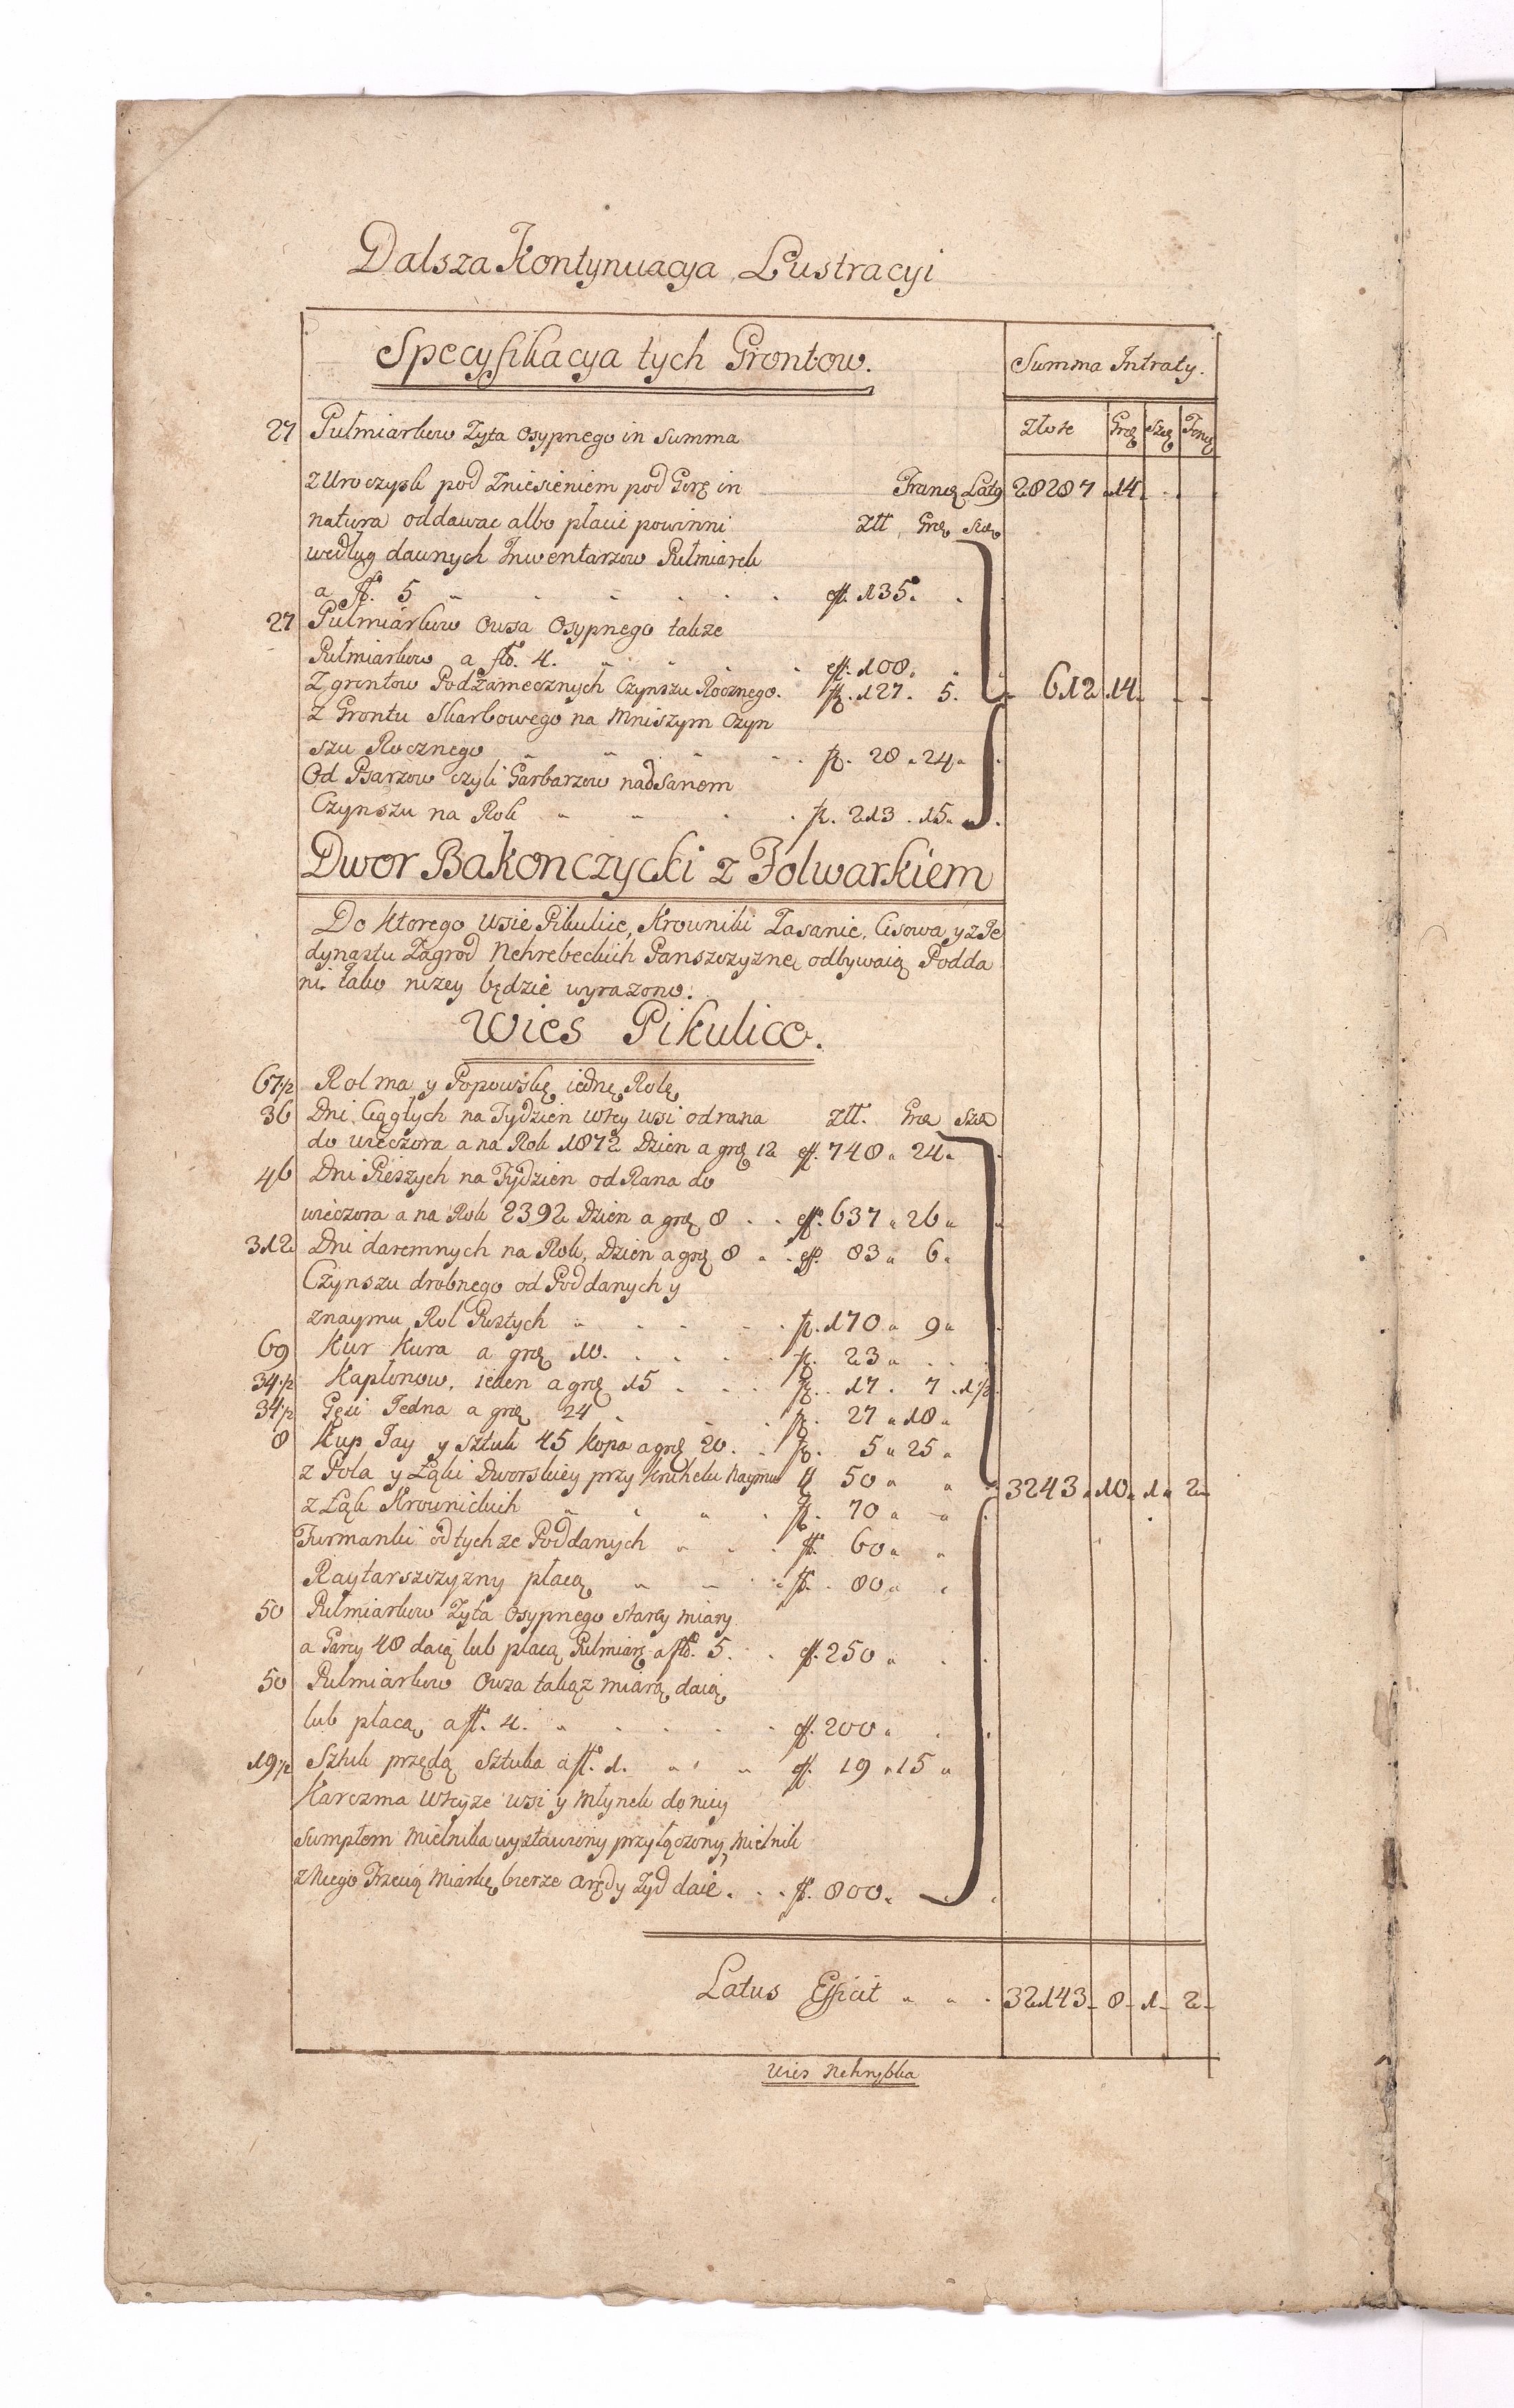 Dalsza Kontynuacya Lustracyi
Specyfikacya tych Grontow.
Summa Intraty.
Złote Groz Szel Fenig
27 Pułmiarkow Zyta Osypnego in Summa
z Uroczysk pod Zniesieniem pod Gorę in Latg 28287 14
natura oddawac albo płacic powinni Złł Groz Szel
według dawnych Inwentarzow Pułmiarek
a fl. 5 fl. 135
27 Pułmiarkow Owsa Osypnego takze
Pułmiarkow a fl. 4. fl. 108
z grontow Podzamecznych Czynszu Rocznego. fl. 127. 5. 612 14
z Grontu Skarbowego na Mniszym Czyn
szu Rocznego fl. 28 24
Od Psarzow czyli Garbarzow nad Sanem
Czynszu na Rok fl. 213 15
Dwor Bakonczycki z Folwarkiem
Do ktorego Wsie Pikulice, Krowniki Zasanie, Cisowa, y z Je
dynastu Zagrod Nehrebeckich Panszczyznę odbywaią Podda
ni iako nizey będzie wyrazono.
Wies Pikulice.
67½ Rol ma y Popowskę iednę Rolę
36 Dni Ciągłych na Tydzien w tey wsi od rana Złł. Groz Szel
do wieczora a na Rok 1872 Dzien a groz 12 fl. 748 24
46 Dni Pieszych na Tydzien od Rana do
wieczora a na Rok 2392 Dzien a groz 8 fl. 637 26
312 Dni daremnych na Rok, Dzien a groz 8 fl. 83 6
Czynszu drobnego od Poddanych y
z naymu Rol Pustych fl. 170 9
69 Kur Kura a groz 10. fl. 23
34½ Kapłonow, ieden a groz 15 fl. 17 7 1½
34½ Gęsi Jedna a groz 24 fl. 27 18
8 Kup Jay y sztuk 45 kopa a groz 20. fl. 5 25
z Pola y Łąki Dworskiey przy Kruhelu Naymu fl 50 3243 10 1 2
z Łąk Krownickich fl. 70
Furmanki od tychze Poddanych fl. 60
Raytarszczyzny płacą fl. 80
50 Pułmiarkow Zyta Osypnego starey miary
a Garcy 48 daią lub płacą Pułmiar a fl. 5. fl. 250
50 Pułmiarkow Owsa takąz miarą daią
lub płacą a fl. 4. fl. 200
19½ Sztuk przędą Sztuka a fl. 1. fl. 19 15
Karczma w teyze wsi y Młynek do niey
sumptem Mielnika wystawiony przyłączony, Mielnik
z niego Trzecią Miarkę bierze Arędy Zyd daie. fl. 800
Latus Efficit 32143 8 1 2
Wies Nehrybka